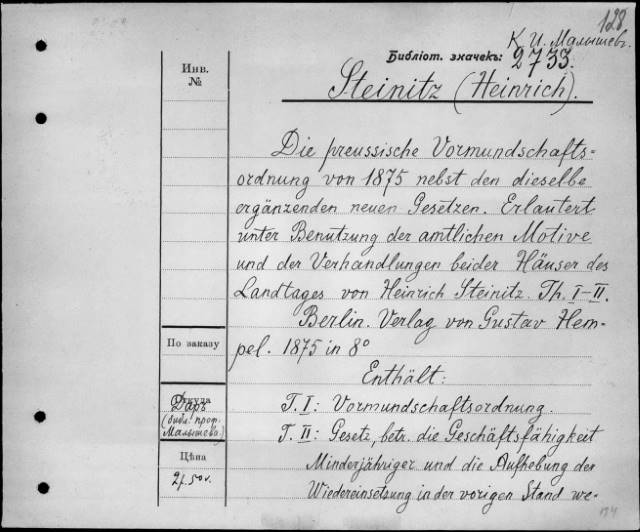 128
К. И. Малышев.
Библіот. значекъ: 2733.
Steinitz (Heinrich).
Инв.
№
Die preussische Vormundschafts=
ordnung von 1875 nebst den dieselbe
ergänzenden neuen Gesetzen. Erlautert
unter Benutzung der amtlichen Motive
und der Verhandlungen beider Häuser des
Landtages von Heinrich Steinitz. Th. I-II.
Berlin. Verlag von Gustav Hem-
pel. 1875 in 8°
Enthält:
T. I: Vormundschaftsordnung.
T. II: Gesetz, betr. die Geschäftsfähigkeit
Minderjähriger und die Aufhebung der
Wiedereinsetzung in der vorigen Stand we-
По заказу
Откуда
Даръ
(библ. проф.
Малышева)
Цѣна